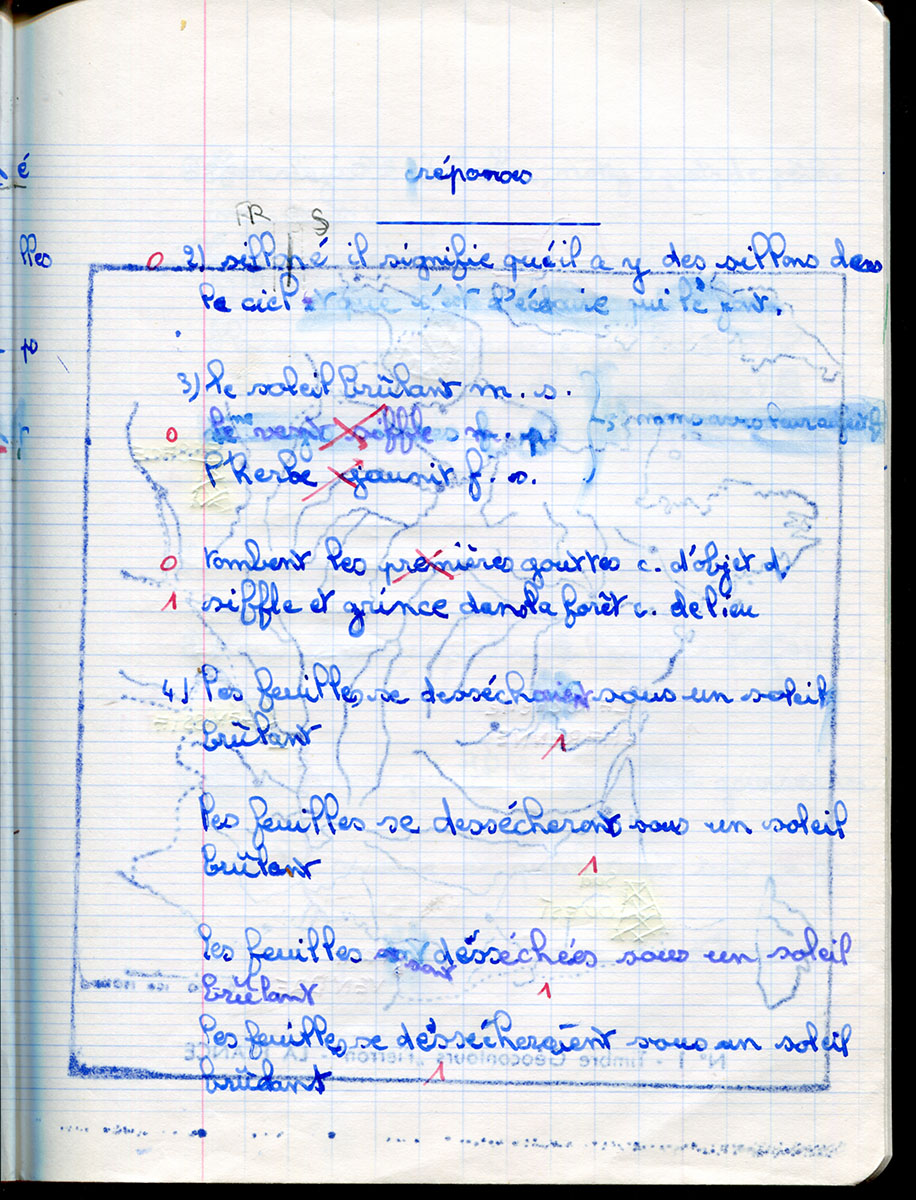 réponses
FR S
0 2) silloné il signifie qu'éil a y des sillons dans
le ciel et que c'est l'éclaire qui le fait.
3) le soleil brûlant m. s.
0 le vent siffle m. p.
l'herbe jaunit f. s.
0 tombent les premières gouttes c. d'objet d.
1 siffle et grince dans la forêt c. de lieu
4) Les feuilles se desséchaient sous un soleil
brûlant 1
Les feuilles se dessécheront sous un soleil
brûlant 1
Les feuilles sont desséchées sous un soleil
brûlant 1
Les feuilles se dessécheraient sous un soleil
brûlant 1
N° 1 - Timbre Géocontours
LA FRANCE
é
lles